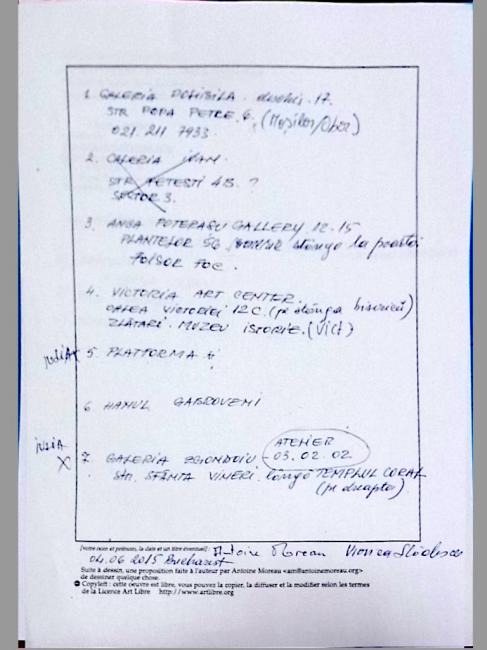 1. GALERIA POSIBILA. deschis. 17.
STR POPA PETRE 6. (Moșilor/Obor)
021. 211 7933.
2. GALERIA IVAN.
STR FETESTI 4B. ?
SECTOR 3.
3. ANCA POTERASU GALLERY 12-15
PLANTELOR 56. stânga la
FOISOR FOC.
4. VICTORIA ART CENTER
CALEA VICTORIEI 12C. (pe stânga bisericii)
ZLĂTARI. MUZEU ISTORIE. (Vict)
iulia 5. PLATFORMA
6 HANUL GABROVENI
ATELIER
iulia
X 7. GALERIA 03.02.02
Str. SFÂNTA VINERI. lângă TEMPLUL CORAL
(pe dreapta).
[votre nom et prénom, la date et un titre éventuel] : Antoine Moreau
04.06 2015 Bucharest
Suite à dessin, une proposition faite à l'auteur par Antoine Moreau <am@antoinemoreau.org>
de dessiner quelque chose.
Copyleft : cette oeuvre est libre, vous pouvez la copier, la diffuser et la modifier selon les termes
de la Licence Art Libre http://www.artlibre.org